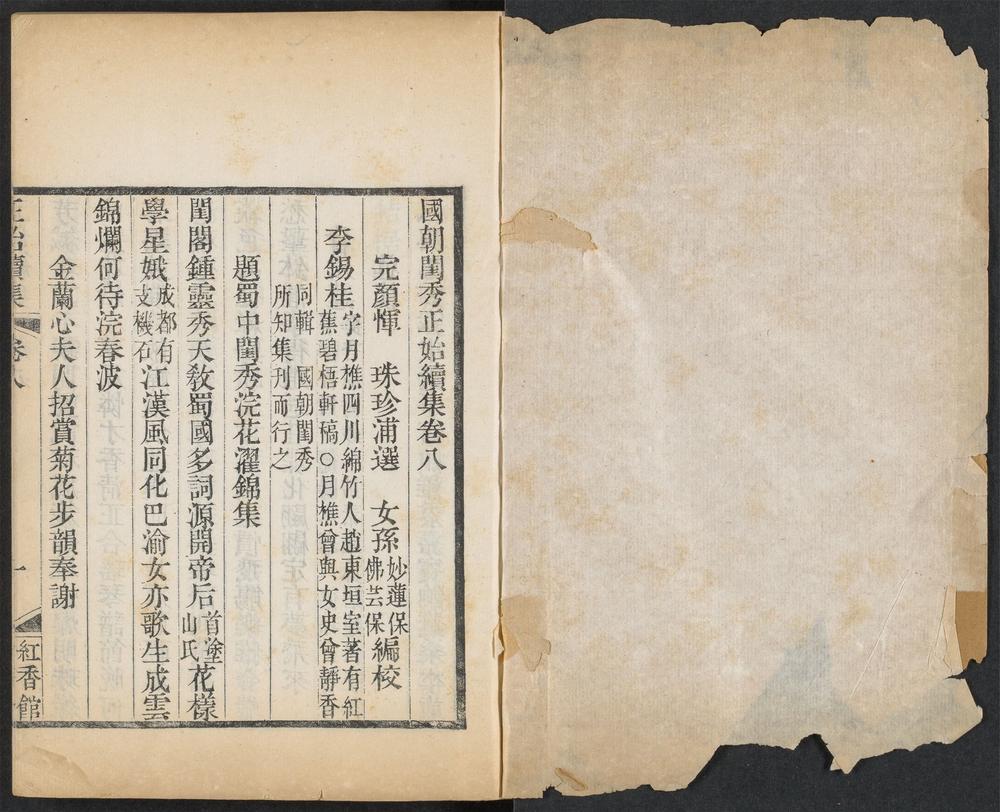 國朝閨秀正始續集卷八
完顏惲　珠珍浦選　女孫妙蓮保佛芸保編校
李錫桂字月樵四川綿竹人趙東垣室著有紅蕉碧梧軒稿○月樵曾與女史曾靜香同輯　國朝閨秀所知集刊而行之
題蜀中閨秀浣花濯錦集
閨閣鍾靈秀天敎蜀國多詞源開帝后首塗山氏花樣
學星娥成都有支機石江漢風同化巴渝女亦歌生成雲
錦爛何待浣春波
金蘭心夫人招賞菊花步韻奉謝
正始續集
卷八
一
紅香館